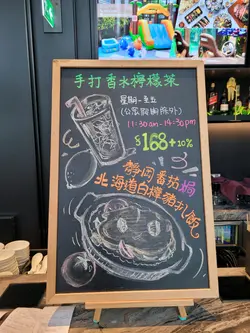 手打香水檸檬茶
星期一至五
(公眾假期除外)
11:30am-14:30pm
$168+10%
靜岡番茄焗
北海道白樺豬扒飯